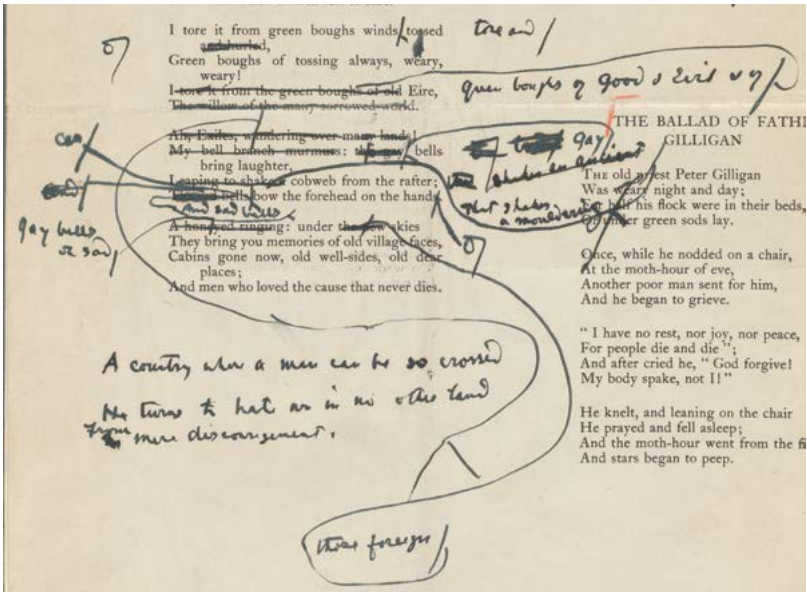 I tore it from green boughs winds tossed
and hurled,
Green boughs of tossing always, weary,
weary!
I tore it from the green boughs of old Eire,
The willow of the many-sorrowed world.
Ah, Exiles, wandering over many lands!
My bell branch murmurs: the gay bells
bring laughter,
Leaping to shake a cobweb from the rafter;
bells bow the forehead on the hands.
A honeyed ringing: under the new skies
They bring you memories of old village faces,
Cabins gone now, old well-sides, old dear
places;
And men who loved the cause that never dies.
tore and
green boughs of good & Evil
gay
shakes an ancient
that shakes
a mouldering
can
and
gay bells
or sad
and sad bells
A country where a man can be so crossed
He turns to hate as in no other land
From mere discouragement.
those foreign
THE BALLAD OF FATH
GILLIGAN
THE old priest Peter Gilligan
Was weary night and day;
For half his flock were in their beds,
Or under green sods lay.
Once, while he nodded on a chair,
At the moth-hour of eve,
Another poor man sent for him,
And he began to grieve.
" I have no rest, nor joy, nor peace,
For people die and die ";
And after cried he, " God forgive!
My body spake, not I! "
He knelt, and leaning on the chair
He prayed and fell asleep;
And the moth-hour went from the fi
And stars began to peep.